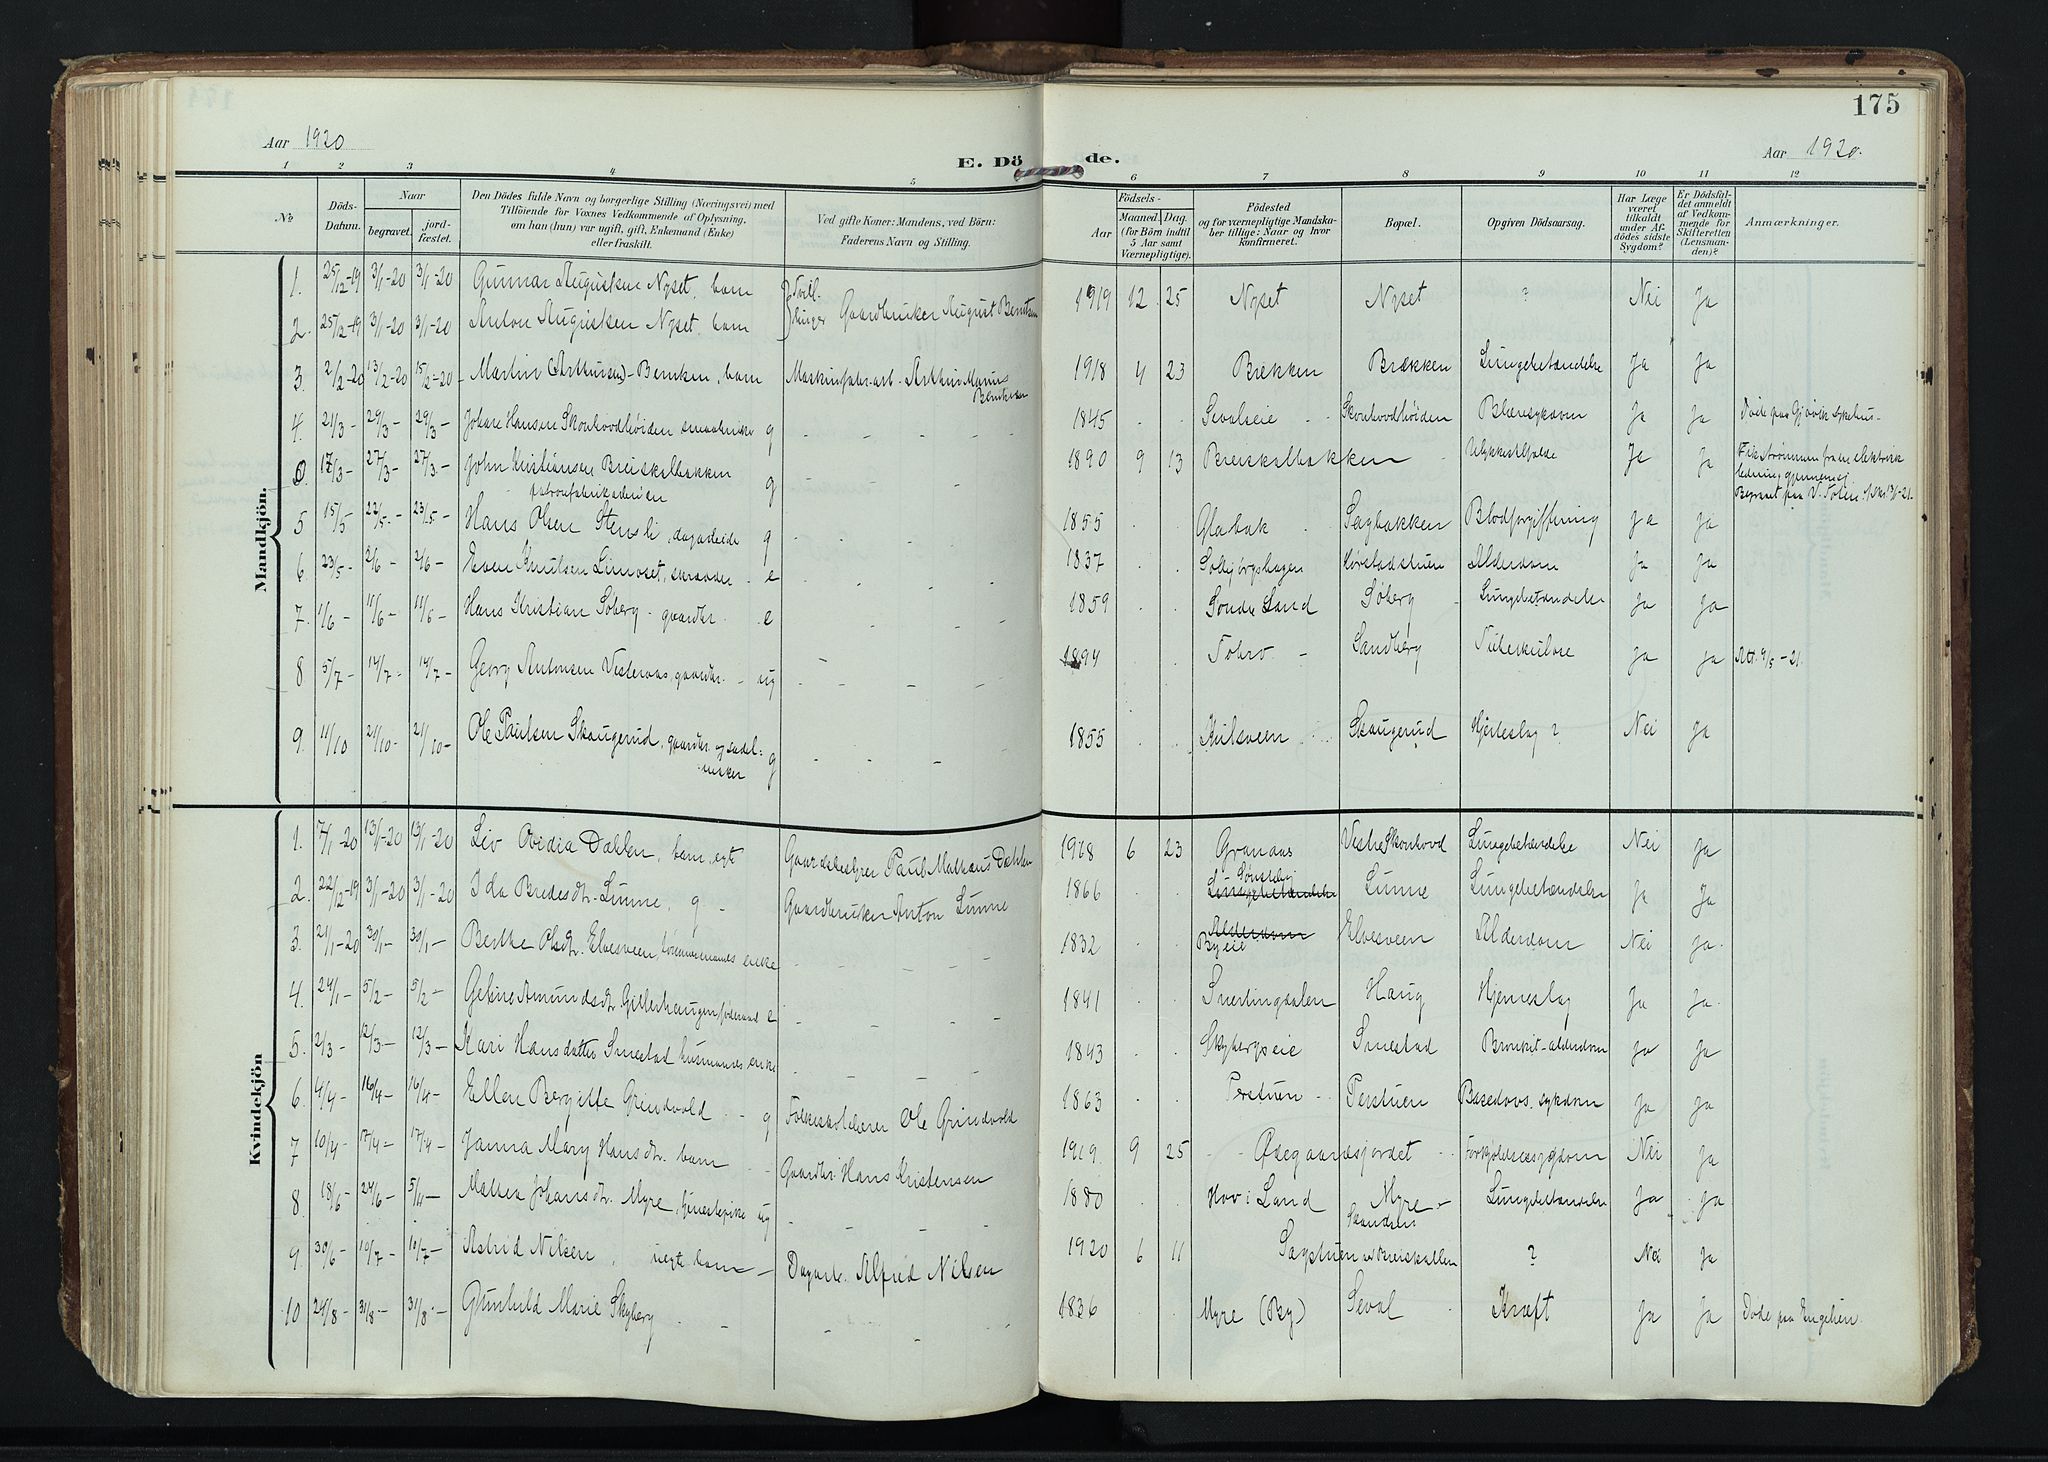 175
Aar 1920
E. Döde.
Aar 1920.
1 2 3 4 5 6 7 8 9 10 11 12
No
Döds-Datum.
Naar
begravet.
jordfæstet.
Den Dödes fulde Navn og borgerlige Stilling (Næringsvei) med
Tilföiende for Voxnes Vedkommende af Oplysning,
om han (hun) var ugift, gift, Enkemand (Enke)
eller fraskilt.
Ved gifte Koner: Mandens, ved Börn:
Faderens Navn og Stilling.
Födsels-
Aar
Maaned. Dag.
(for Börn indtil
5 Aar samt
Værnepligtige).
Födested
og for værnepligtige Mandska-
ber tillige: Naar og hvor
konfirmeret.
Bopæl.
Opgiven Dödsaarsag.
Har Læge
været
tilkaldt
under Af-
dödes sidste
Sygdom?
Er Dödsfal-
det anmeldt
af Vedkom-
mende for
Skifteretten
(Lensman-
den)?
Anmærkninger.
Mandkjön.
1. 25/12-19 3/1-20 3/1-20 Gunnar Augustsen Nyset, barn Tvillinger Gaardbruker August Berntsen 1919 12 25 Nyset Nyset ? Nei Ja
2. 25/12-19 3/1-20 3/1-20 Anton Augustsen Nyset, barn
3. 2/2-20 13/2-20 15/2-20 Martin (Arthursen) Berntsen, barn Maskinfabr.arb. Arthur Marius 1918 4 23 Brekken Brækken Lungebetændelse Ja Ja
4. 21/3- 29/3- 29/3- Johan Hansen Skonhovdhøiden g 1845 Sevalseie Skonhovdhøiden Blæresykdom Ja Ja Døde paa Gjøvik sykehus
17/3- 27/3- 27/3- John Kristiansen Breiskalbakken g 1890 9 13 Breiskalbakken Ulykkestilfælde Ja Ja Fik strømmen fra en elektrisk
patronfabrikarbeider ledning gjennem sig.
Begravet paa V. Toten
5 15/5 22/5- 23/5- Hans Olsen Stensli, dagarbeider g 1855 Glæbak Sagbakken Blodforgiftning Ja Ja
6. 23/5- 2/6- 2/6- Even Knutsen Limoset e 1837 Solbjørgshagen Alderdom Ja Ja
7. 1/6- 11/6- 11/6- Hans Kristian Søberg - gaardbr. e 1859 Søndre Land Søberg Lungebetændelse Ja Ja
8 5/7- 14/7- 14/7- Georg Antonsen Vesteraas, gaardbr. - ug 1894 Sandberg Tuberkulose Ja Ja Att. 9/5-21.
9. 11/10 21/10- 21/10- Ole Paulsen Skaugerud, gaardbr. og sadel- g 1855 Skaugerud Hjerteslag? Nei Ja
maker
Kvindekjön
1. 7/1-20 13/1-20 13/1-20 Liv Ovidia Dahlen, barn, egte Gaardsbestyrer Paul Mathæus Dahlen 1918 6 23 Granaas Vestre Skonhovd Lungebetændelse Nei Ja
2. 22/12-19 3/1-20 3/1-20 Ida Bredesdtr. Lunne, g Gaardbruker Anton Lunne 1866 Lungebetændelse Lunne Lungebetændelse Ja Ja
3. 21/1-20 30/1- 30/1- Berthe Olsdtr. Elvesveen, enke 1832 Alderdom Byeie Elvesveen Alderdom Nei Ja.
4. 24/1- 5/2- 5/2- Amundsdtr. e 1841 Snertingdalen Haug Hjerneslag Ja Ja.
5. 2/3- 12/3- 12/3- Kari Hansdatter Smestad husmands enke 1843 Skybergseie Smestad Bronkit-alderdom Ja Ja
6. 4/4- 16/4- 16/4- Ellen Bergitte Grindvold - g Folkeskolelærer Ole Grindvold 1863 Perstuen Perstuen Basedows sykdom Ja Ja
7 10/4- 17/4- 17/4- Janna Mary Hansdtr. barn Gaardbr. Hans Kristensen 1919. 9 25 Øvegaardsjordet Nei Ja
8. 18/6- 24/6- 5/4- Mathea Johansdtr. Myre, tjenestepike ug 1880 Hov i Land Myre Lungebetændelse Ja Ja
9 30/6- 10/7- 10/7- Astrid Nilsen, uegte barn Dagarb. Alfred Nilsen 1920 6 11 Sagstuen ? Nei Ja
10 24/8- 31/8- 31/8- Gunhild Marie Skyberg 1836 Myre (By) Seval Kræft Ja Ja Døde paa Engelien.